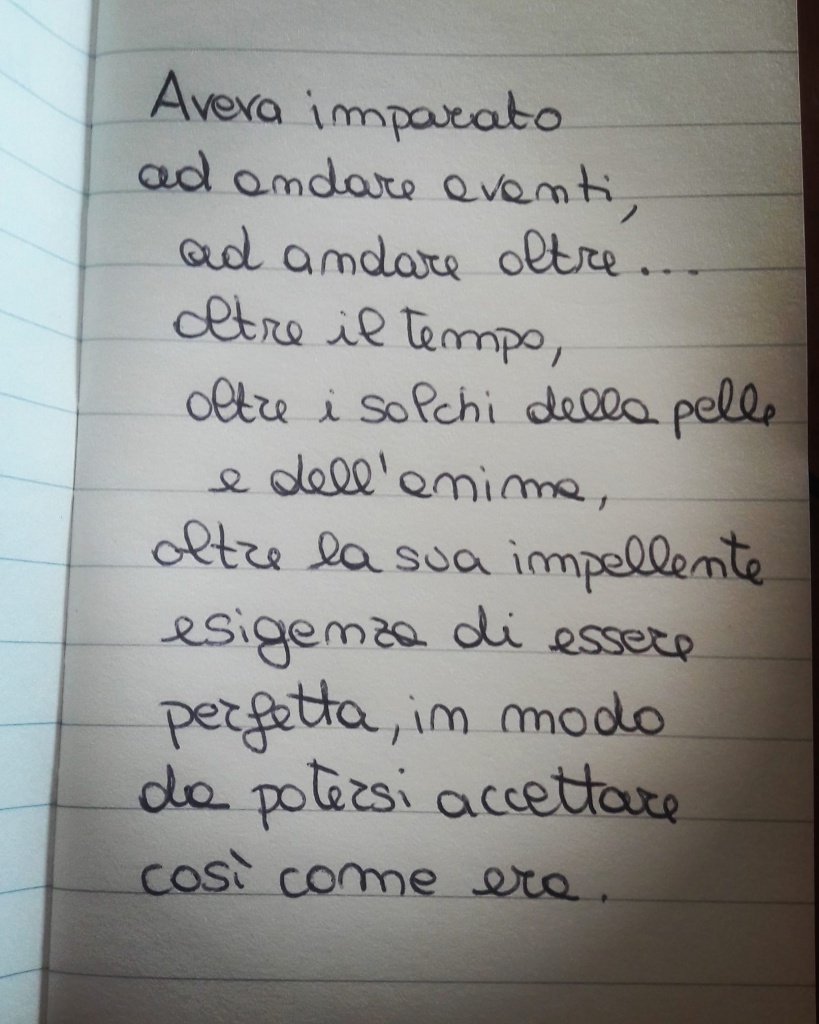 Aveva imparato
ad andare avanti,
ad andare oltre...
oltre il tempo,
oltre i solchi della pelle
e dell'anima,
oltre la sua impellente
esigenza di essere
perfetta, in modo
da potersi accettare
così come era.